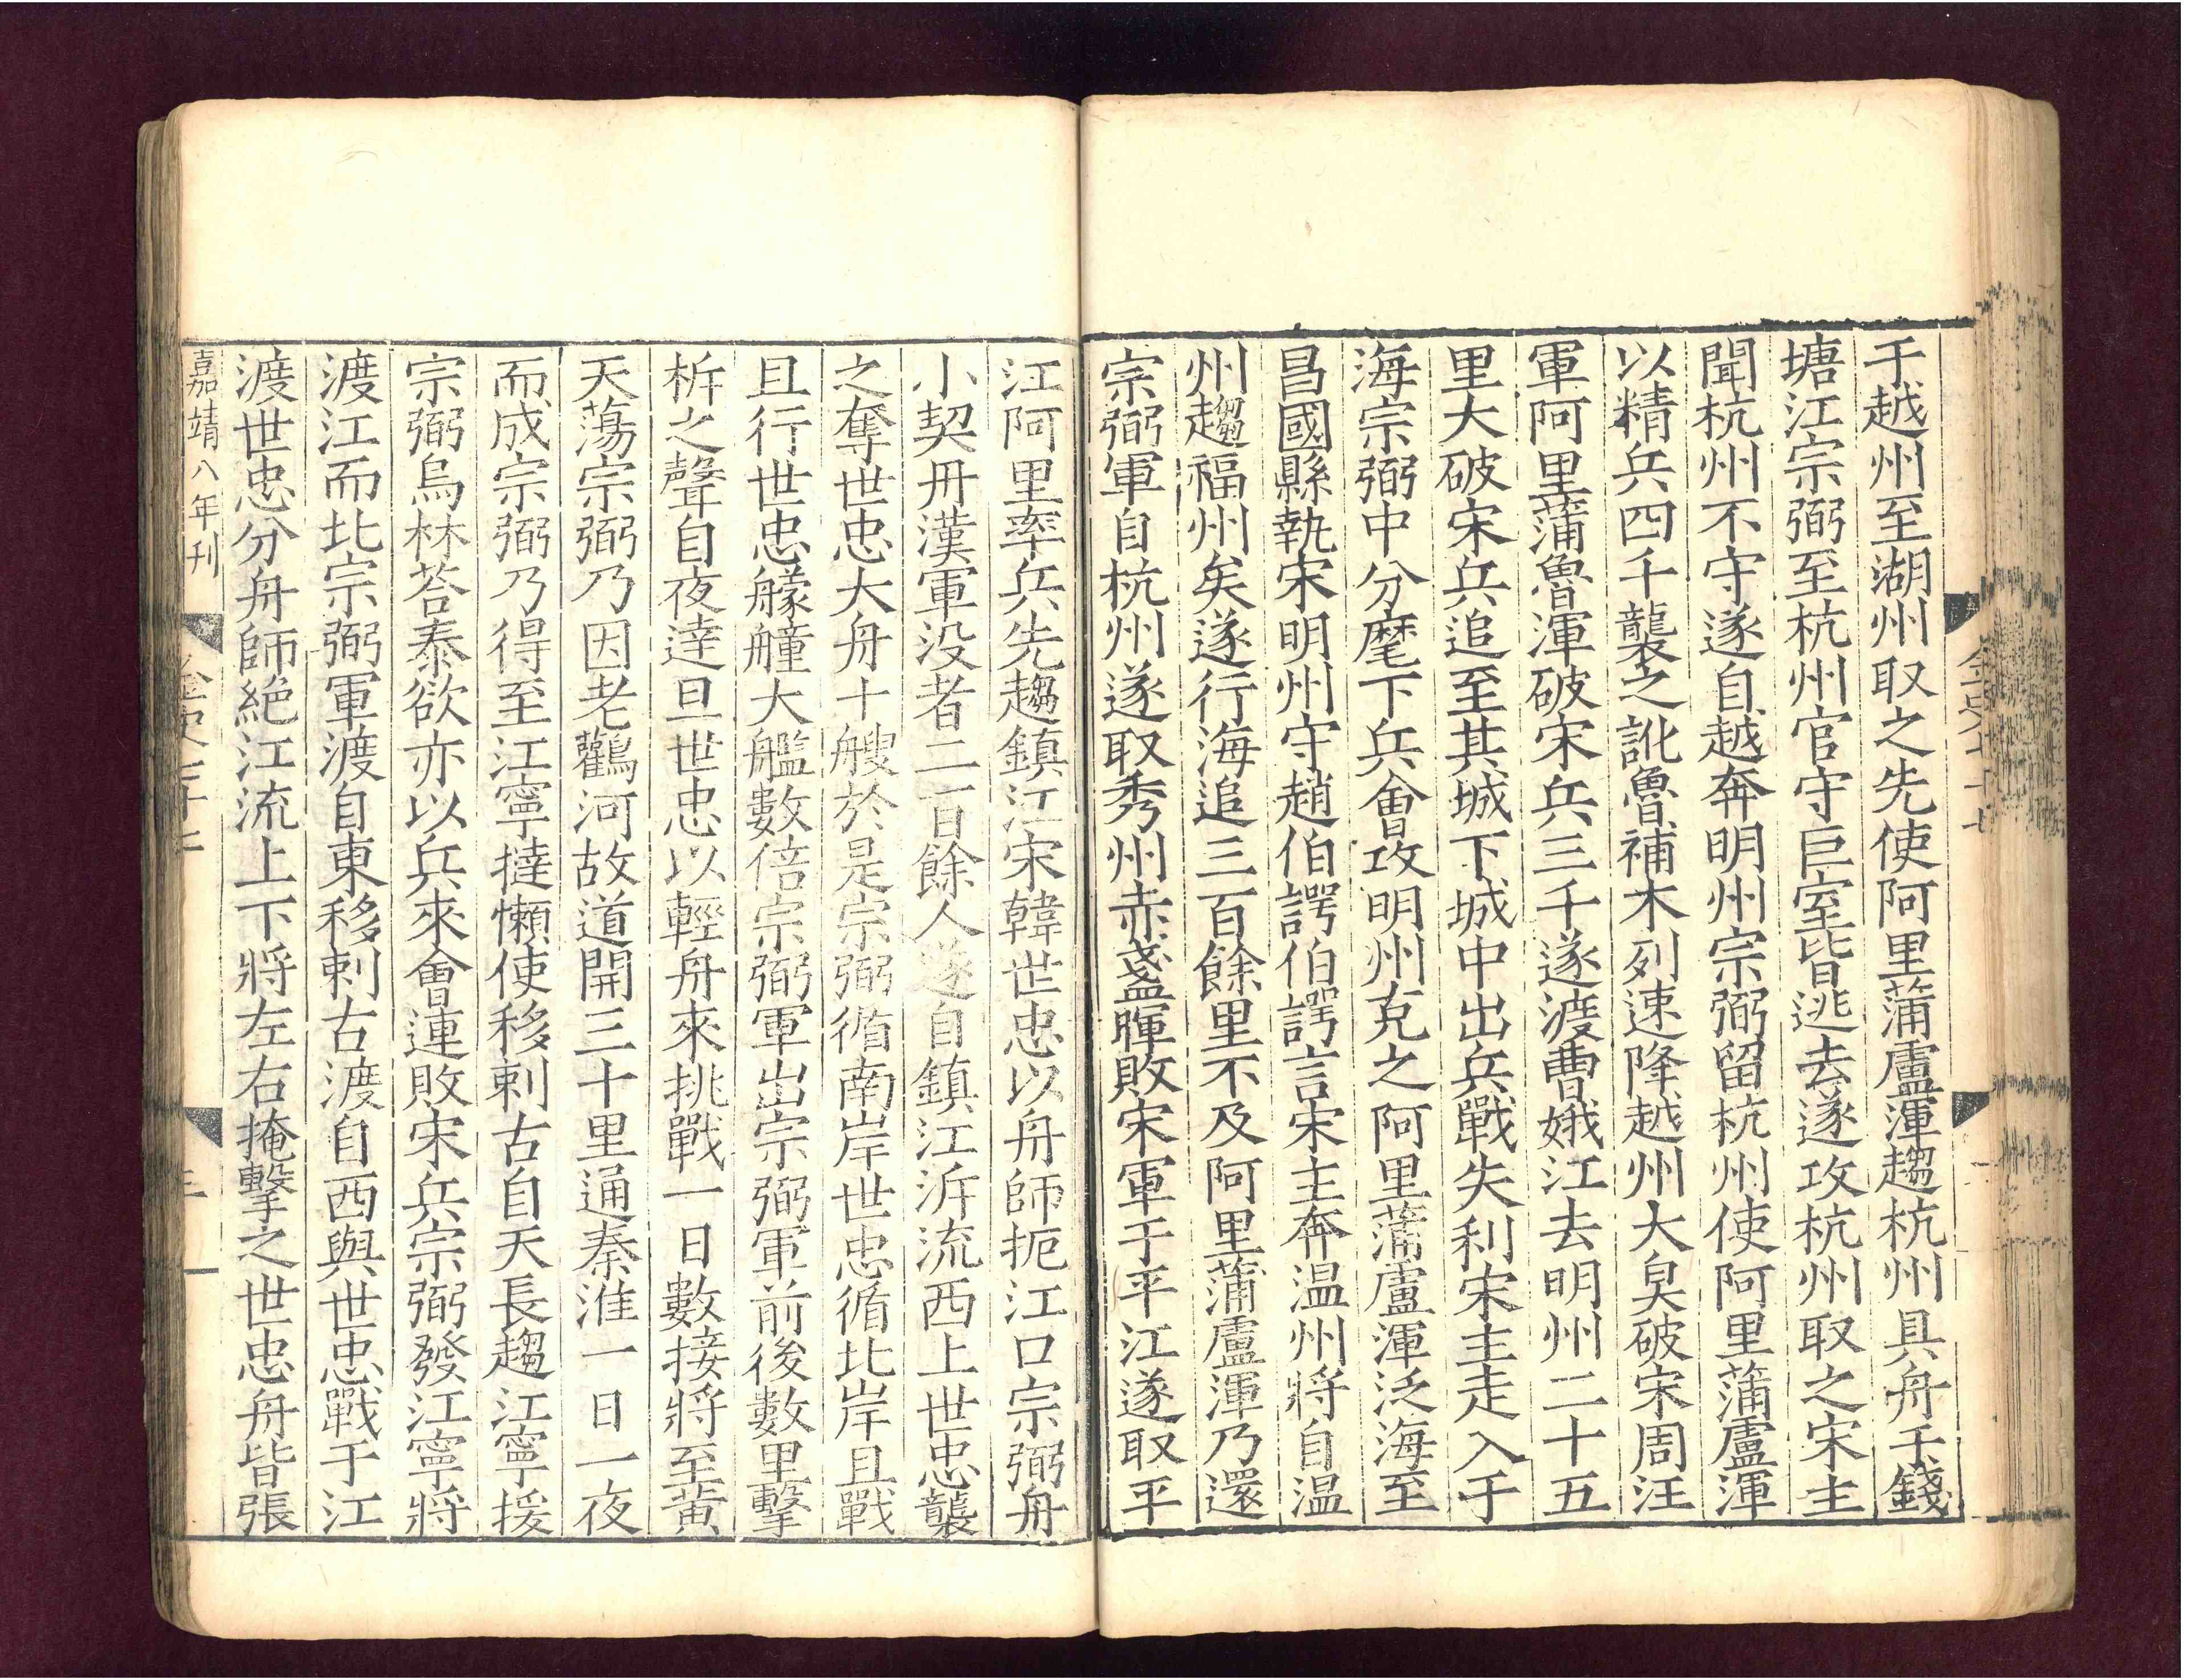 于越州至湖州取之先使阿里蒲盧渾趨杭州具舟于錢
塘江宗弼至杭州官守巨室皆逃去遂攻杭州取之宋主
聞杭州不守遂自越奔明州宗弼留杭州使阿里蒲盧渾
以精兵四千襲之訛魯補木列速降越州大㚖破宋周汪
軍阿里蒲魯渾破宋兵三千遂渡曹娥江去明州二十五
里大破宋兵追至其城下城中出兵戰失利宋主走入于
海宗弼中分麾下兵會攻明州克之阿里蒲盧渾泛海至
昌國縣執宋明州守趙伯諤伯諤言宋主奔温州將自温
州趨福州矣遂行海追三百餘里不及阿里蒲盧渾乃還
宗弼軍自杭州遂取秀州赤盞暉敗宋軍于平江遂取平
江阿里率兵先趨鎮江宋韓世忠以舟師扼江口宗弼舟
小契丹漢軍没者二百餘人遂自鎮江泝流西上世忠襲
之奪世忠大舟十艘於是宗弼循南岸世忠循北岸且戰
且行世忠艨艟大艦數倍宗弼軍出宗弼軍前後數里擊
柝之聲自夜達旦世忠以輕舟來挑戰一日數接將至黃
天蕩宗弼乃因老鸛河故道開三十里通秦淮一日一夜
而成宗弼乃得至江寧撻懶使移剌古自天長趨江寧援
宗弼烏林荅泰欲亦以兵來會連敗宋兵宗弼發江寧將
渡江而北宗弼軍渡自東移剌古渡自西與世忠戰于江
渡世忠分舟師絶江流上下將左右掩擊之世忠舟皆張
嘉靖八年刊
金史七十七